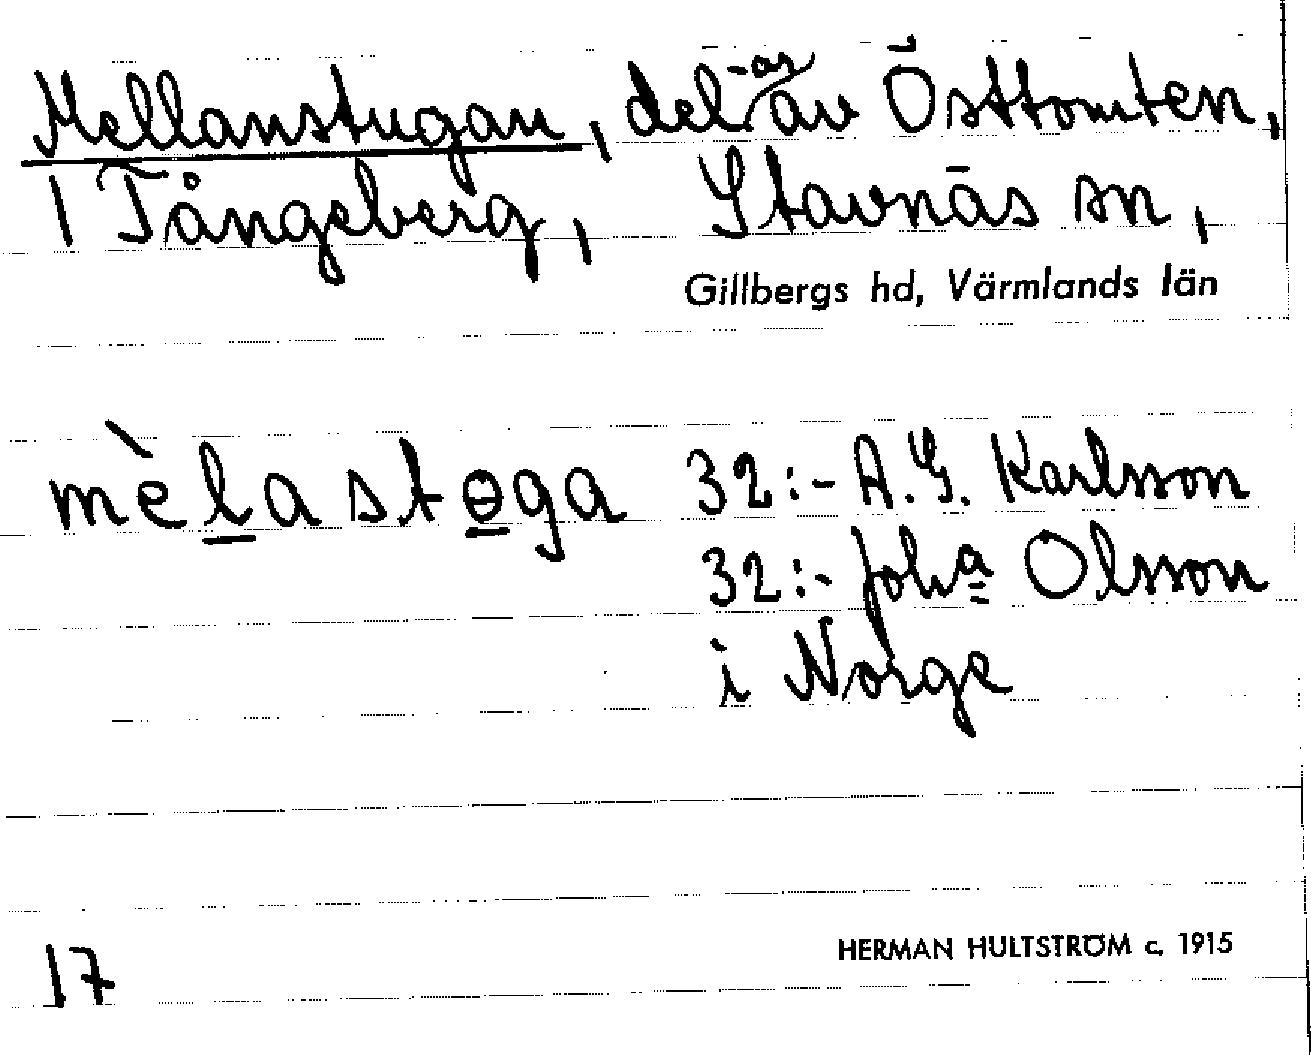 Mellanstugan, del-ar av Östtomten,
1 Tångeberg, Stavnäs sn,
Gillbergs hd, Värmlands län
mèlastɵga 32:- A.G. Karlsson
32:- Joha Olsson
i Norge
17
HERMAN HULTSTRÖM c. 1915